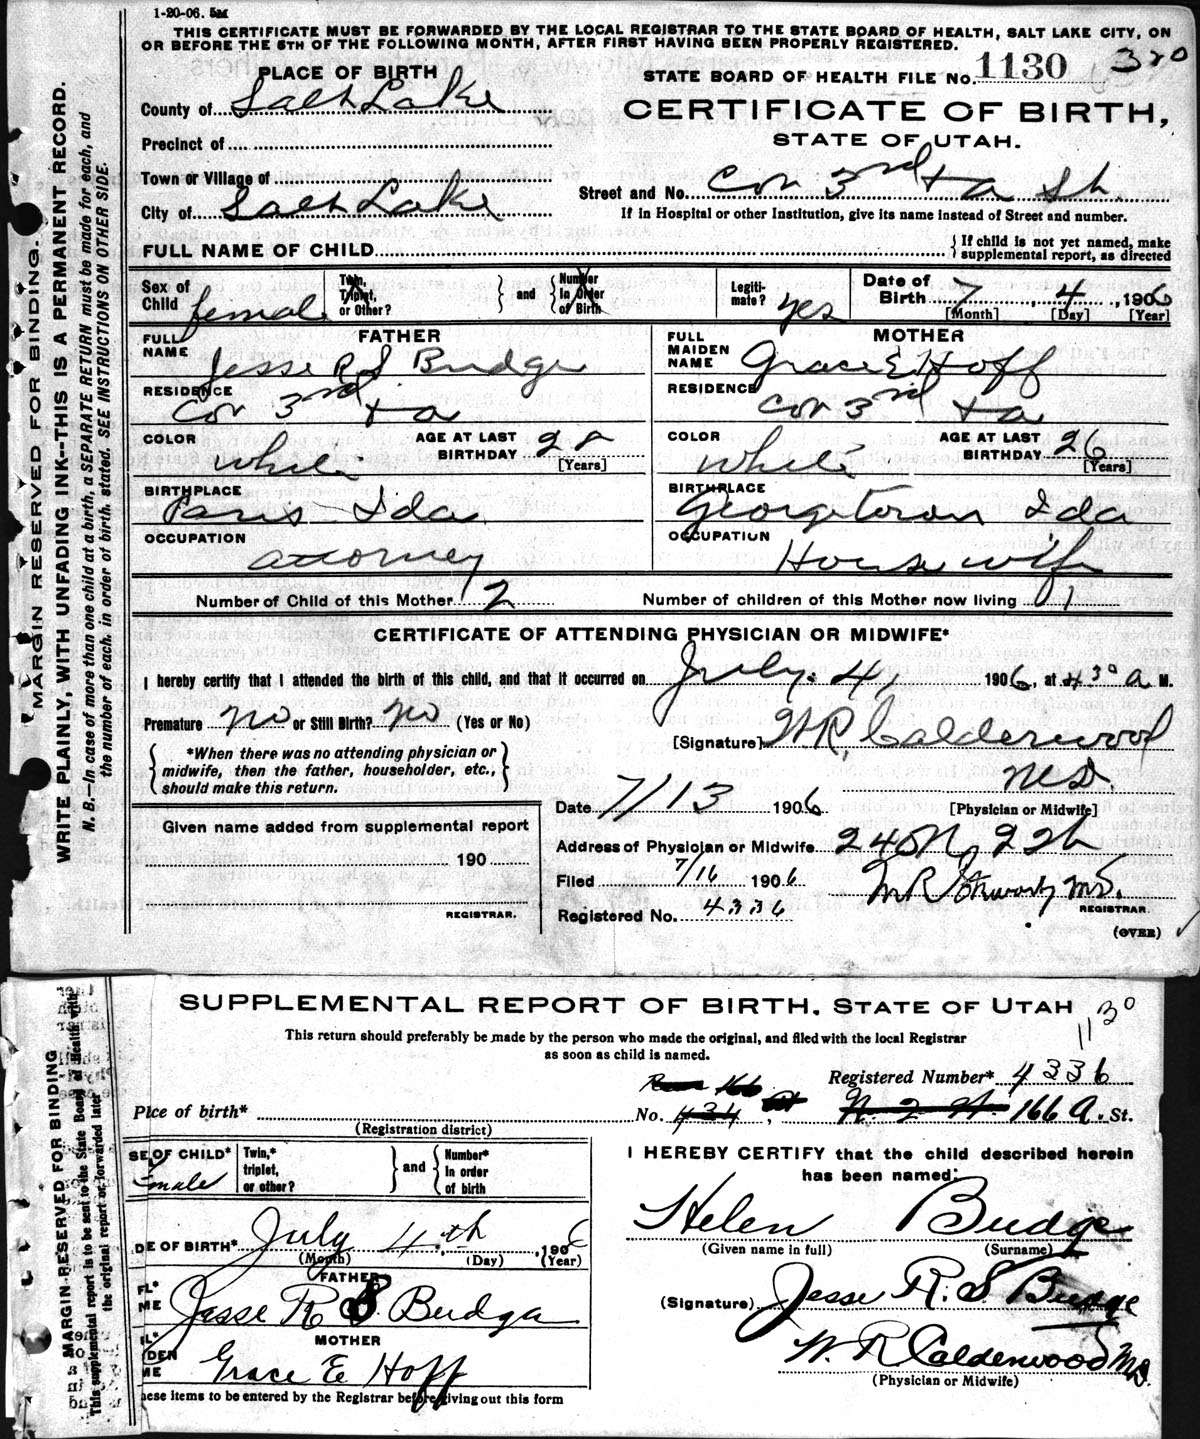 1-20-06. 5M
THIS CERTIFICATE MUST BE FORWARDED BY THE LOCAL REGISTRAR TO THE STATE BOARD OF HEALTH, SALT LAKE CITY, ON
OR BEFORE THE 5TH OF THE FOLLOWING MONTH, AFTER FIRST HAVING BEEN PROPERLY REGISTERED.
MARGIN RESERVED FOR BINDING.
WRITE PLAINLY, WITH UNFADING INK--THIS IS A PERMANENT RECORD.
N. B.--In case of more than one child at a birth, a SEPARATE RETURN must be made for each, and
the number of each, in order of birth, stated. SEE INSTRUCTIONS ON OTHER SIDE.
PLACE OF BIRTH
STATE BOARD OF HEALTH FILE NO. 1130 320
County of Salt Lake
CERTIFICATE OF BIRTH,
STATE OF UTAH.
Precinct of
Town or Village of
Street and No. Cor 3rd + a St.
City of Salt Lake
If in Hospital or other Institution, give its name instead of Street and number.
FULL NAME OF CHILD
If child is not yet named, make
supplemental report, as directed
Sex of Child female
Twin, Triplet, or Other?
and
Number In Order of Birth
Legiti- mate? yes
Date of Birth 7, 4, 1906
[Month] [Day] [Year]
FATHER
FULL NAME Jesse R S Budge
RESIDENCE Cor 3rd + a
COLOR White
AGE AT LAST BIRTHDAY 28 [Years]
BIRTHPLACE Paris Ida
OCCUPATION attorney
MOTHER
FULL MAIDEN NAME Grace E Hoff
RESIDENCE Cor 3rd + a
COLOR White
AGE AT LAST BIRTHDAY 26 [Years]
BIRTHPLACE Georgetown Ida
OCCUPATION House wife
Number of Child of this Mother 2
Number of children of this Mother now living 1
CERTIFICATE OF ATTENDING PHYSICIAN OR MIDWIFE*
I hereby certify that I attended the birth of this child, and that it occurred on July 4, 1906, at 430 a M.
Premature no or Still Birth? no (Yes or No)
[Signature] W R, Calderwood
M.D.
[Physician or Midwife]
*When there was no attending physician or
midwife, then the father, householder, etc.,
should make this return.
Date 7/13 1906
Given name added from supplemental report
190
REGISTRAR.
Address of Physician or Midwife 240 N, 22h
Filed 7/16 1906
M.D.
REGISTRAR.
Registered No. 4336
(OVER)
SUPPLEMENTAL REPORT OF BIRTH, STATE OF UTAH
1130
This return should preferably be made by the person who made the original, and filed with the local Registrar
as soon as child is named.
MARGIN RESERVED FOR BINDING
This supplemental report is to be sent to the State Board of Health with
the original report or forwarded later
Registered Number* 4336
Plce of birth* No. 434, 166 A. St.
(Registration district)
SE OF CHILD* Female
Twin,* triplet, or other?
and
Number* In order of birth
I HEREBY CERTIFY that the child described herein
has been named:
Helen Budge
(Given name in full) (Surname)
DE OF BIRTH* July 4th, 1906
(Month) (Day) (Year)
FATHER
FL* ME Jesse R S. Budge
(Signature) Jesse R. S. Budge
MOTHER
L* DEN ME Grace E Hoff
W. R Calderwood M.D.
(Physician or Midwife)
ese items to be entered by the Registrar before giving out this form